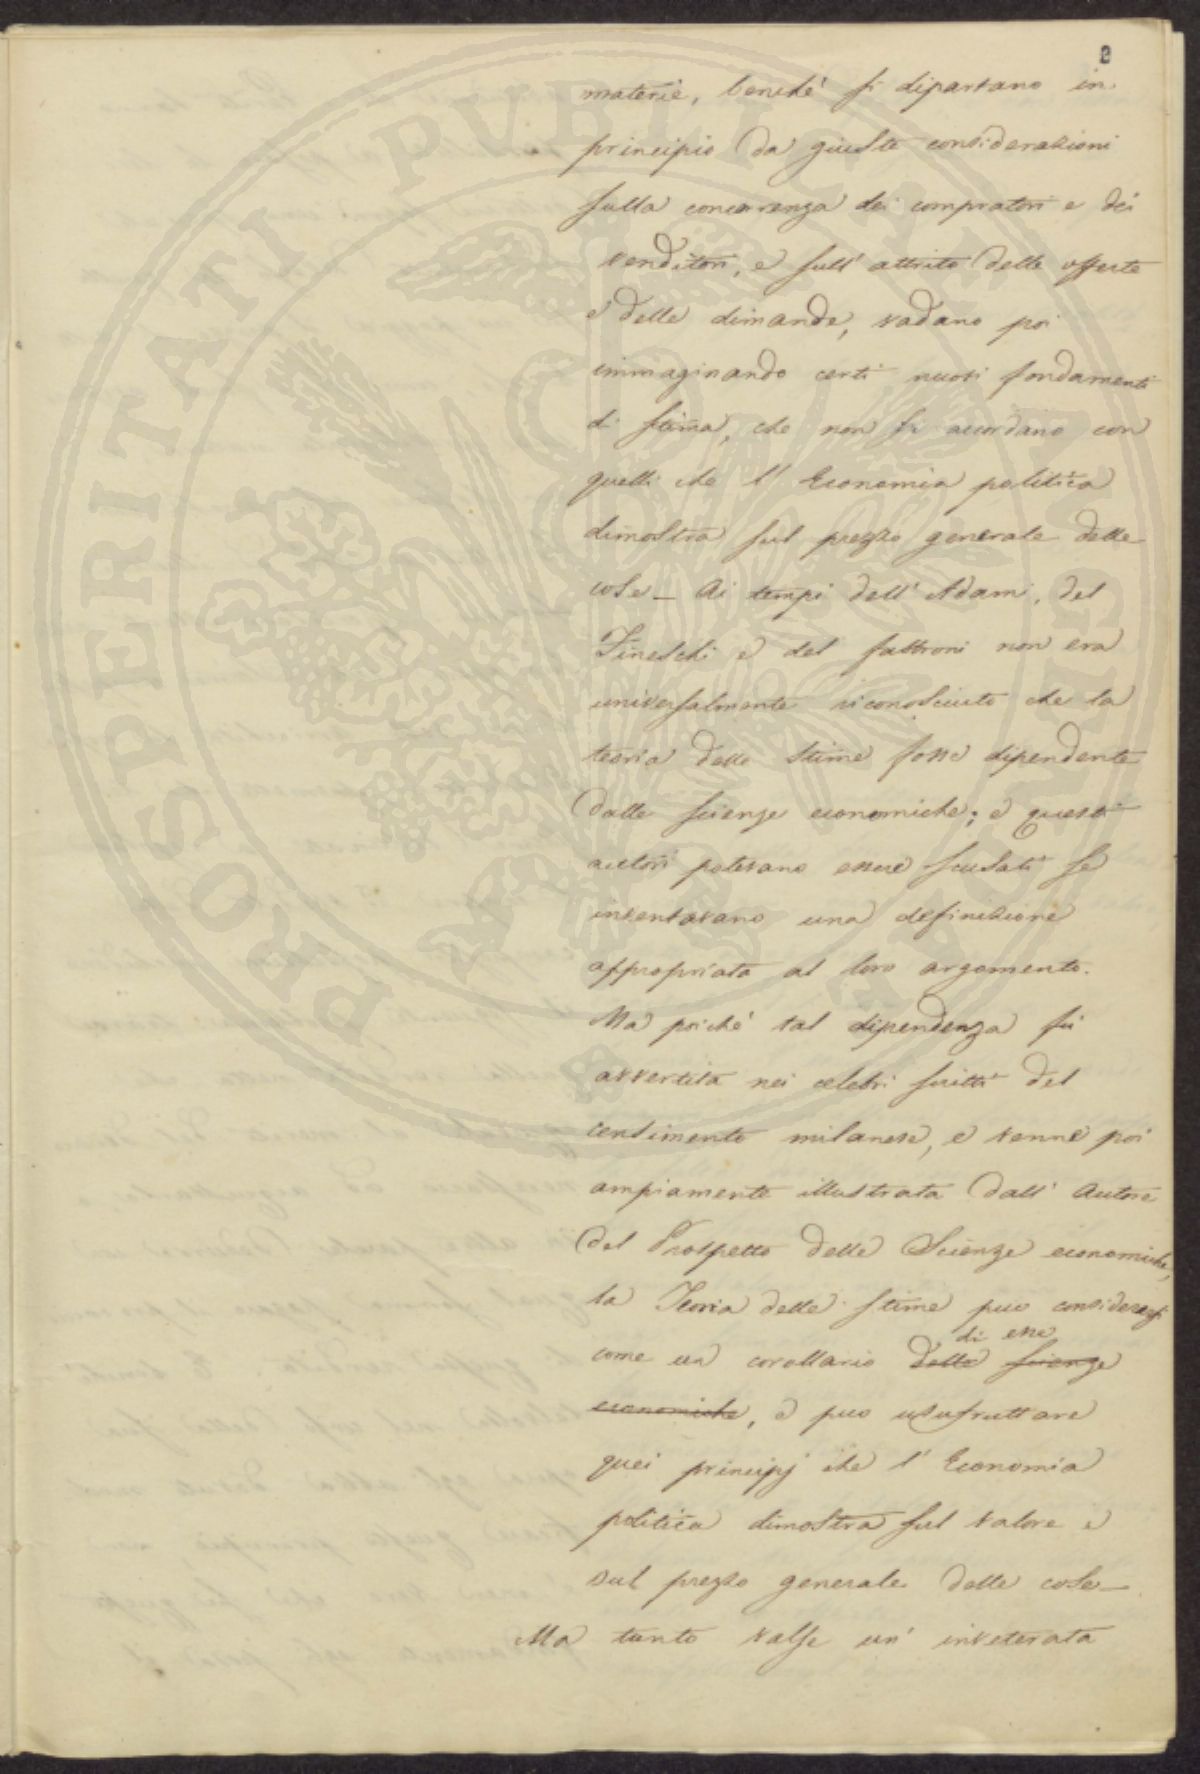 2
materie, benchè si dipartano in
principio da giuste considerazioni
sulla concorrenza dei compratori e dei
venditori, e sull' attrito delle offerte
e delle dimande, vadano poi
immaginando certi nuovi fondamenti
di stima, che non si accordano con
quelli che l' Economia politica
dimostra sul prezzo generale delle
cose_ Ai tempi dell' Adami, del
Tineschi e del fabbroni non era
universalmente riconosciuto che la
teoria delle stime fosse dipendente
dalle scienze economiche; e questi
autori potevano essere scusati se
inventavano una definizione
appropriata al loro argomento.
Ma poichè tal dipendenza fù
avvertita nei celebri scritti del
censimento milanese, e venne poi
ampiamente illustrata dall' Autore
del Prospetto delle Scienze economiche,
la Teoria delle stime può considerarsi
di esse
come un corollario delle scienze
economiche, e può usufruttare
quei principj che l' Economia
politica dimostra sul valore e
sul prezzo generale delle cose_
Ma tanto valse un' inveterata
PROSPERITATI PVBLICAE AVGENDAE